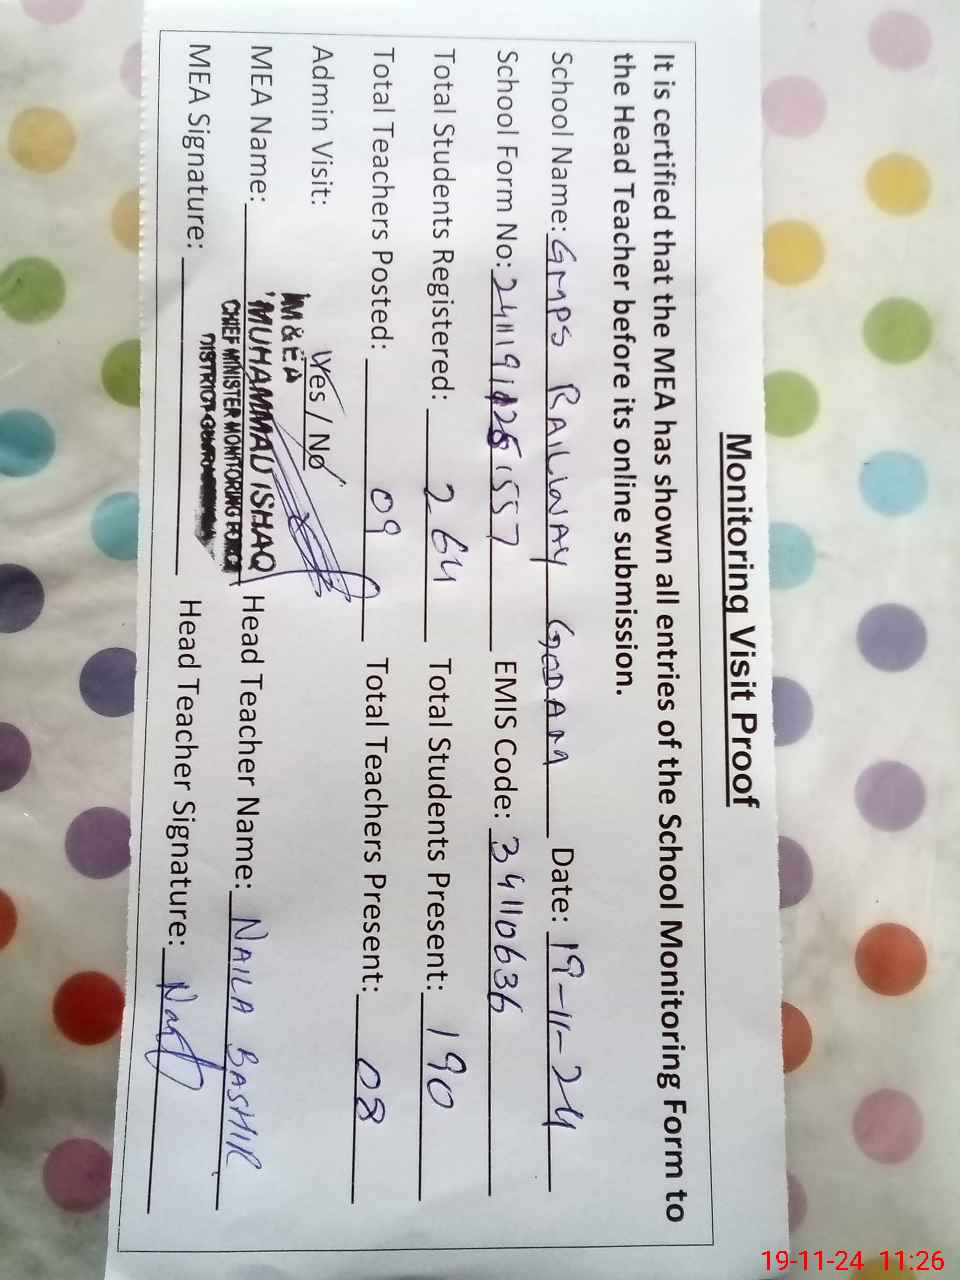 Monitoring Visit Proof
It is certified that the MEA has shown all entries of the School Monitoring Form to
the Head Teacher before its online submission.
School Name: GMPS RAILWAY GODAM Date: 19-11-24
School Form No: EMIS Code: 34110636
Total Students Registered: 264 Total Students Present: 190
Total Teachers Posted: 09 Total Teachers Present: 08
Admin Visit: Yes / No
M & EA
MEA Name: MUHAMMAD ISHAQ Head Teacher Name: NAILA BASHIR
CHIEF MINISTER MONITORING FORCE
DISTRICT
MEA Signature: Head Teacher Signature:
19-11-24 11:26